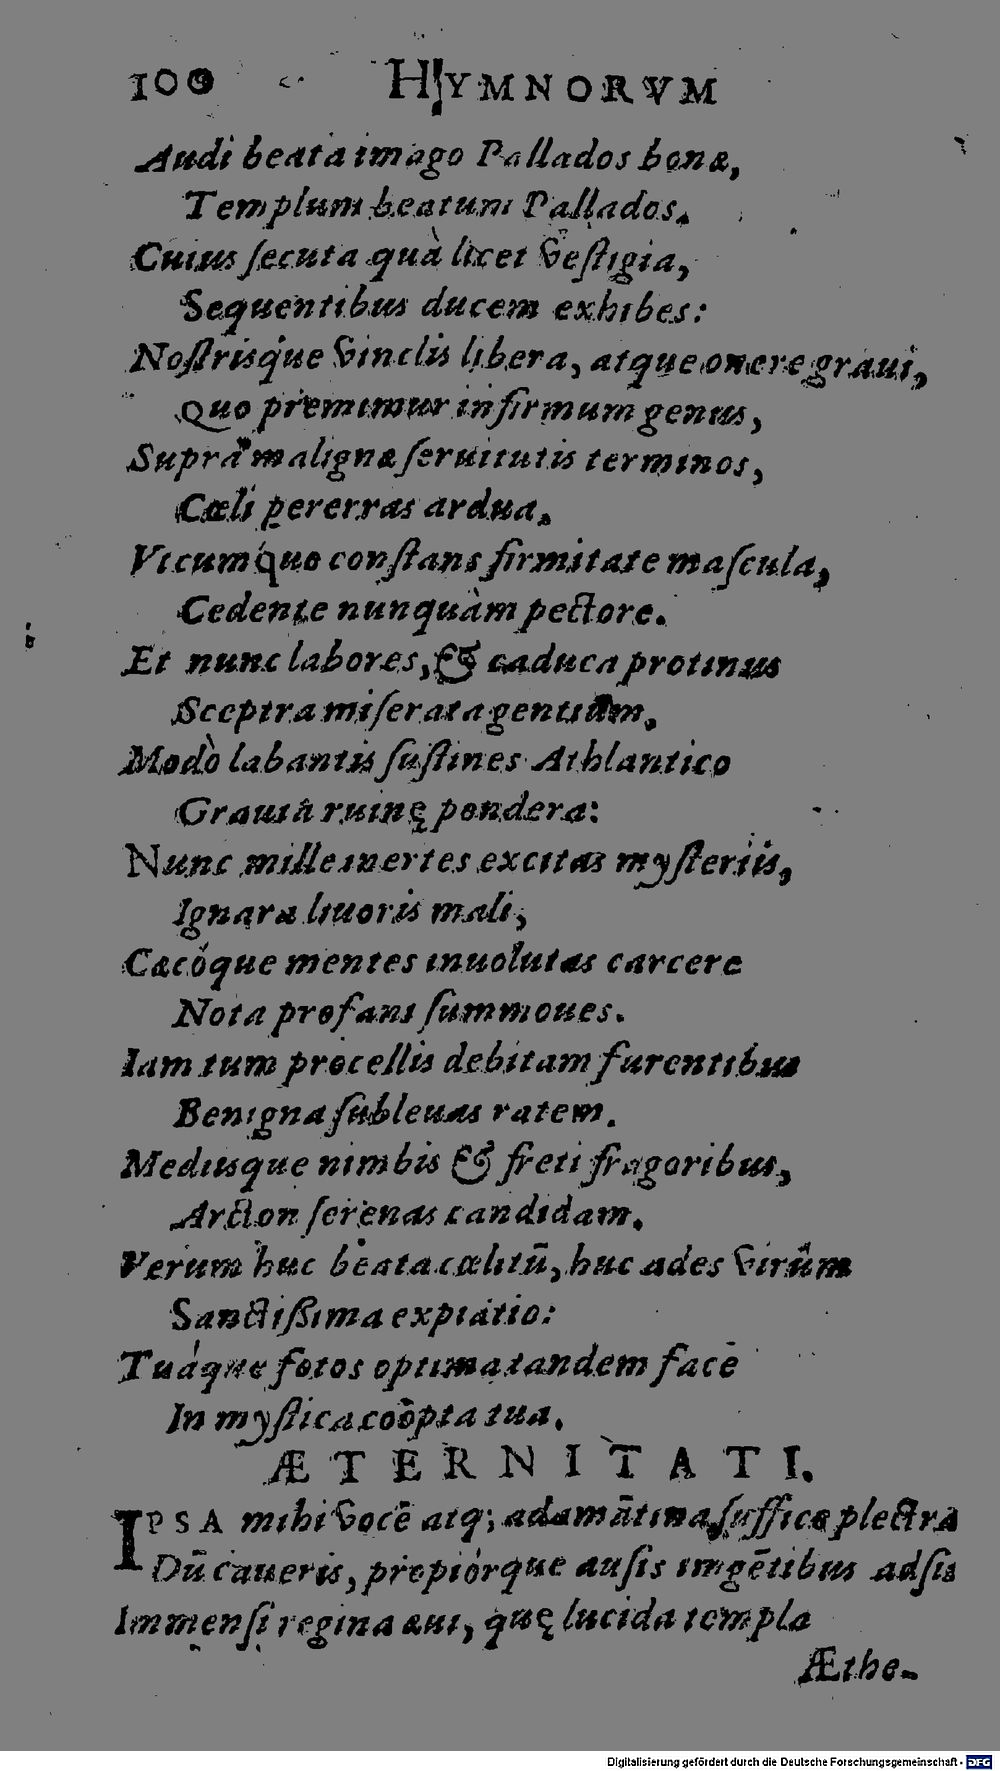 100 HYMNORVM
Audi beata imago Pallados bonæ,
Templum beatum Pallados.
Cuius ſecuta quà licet veſtigia,
Sequentibus ducem exhibes:
Noſtrisq́ue vinclis libera, atque onere graui,
Quo premimur infirmum genus,
Supra malignæ ſeruitutis terminos,
Cœli pererras ardua.
Vtcumq́ue conſtans firmitate maſcula,
Cedente nunquàm pectore.
Et nunc labores, & caduca protinus
Sceptra miſerata gentium.
Modò labantis ſuſtines Athlantico
Grauia ruinę pondera:
Nunc mille inertes excitas myſteriis,
Ignara liuoris mali,
Cæcóque mentes inuolutas carcere
Nota profani ſummoues.
Iam tum procellis debitam furentibus
Benigna ſubleuas ratem.
Mediisque nimbis & freti fragoribus,
Arcton ſerenas candidam.
Verum huc beata cœlitū, huc ades virûm
Sanctißima expiatio:
Tuáque fotos optima tandem face
In myſtica coôpta tua.
ÆTERNITATI.
IPSA mihi vocē atq; adamātina ſuffice plectra
Dū caueris, propiórque auſis ingētibus adſis
Immenſi regina æui, quę lucida templa
Æthe-
Digitalisierung gefördert durch die Deutsche Forschungsgemeinschaft - DFG